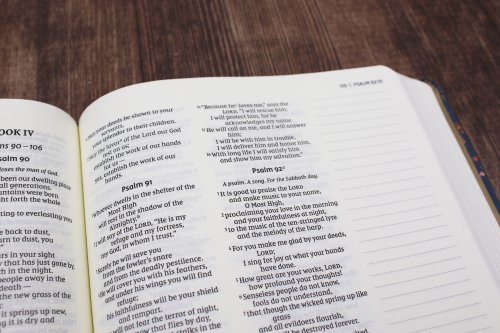 OOK IV
ms 90–106
alm 90
oses the man of God.
been our dwelling place
all generations.
ntains were born
ht forth the whole
ting to everlasting you
back to dust,
urn to dust, you
ars in your sight
ay that has just gone by,
tch in the night.
people away in the
death—
e the new grass of the
it springs up new,
it is dry and
your deeds be shown to your
servants,
your splendor to their children.
of the Lord our God
establish the work of our hands
for us—
yes, establish the work of our
hands.
Psalm 91
Whoever dwells in the shelter of the
Most High
will rest in the shadow of the
Almighty.
I will say of the LORD, "He is my
refuge and my fortress,
my God, in whom I trust."
Surely he will save you
from the fowler's snare
and from the deadly pestilence.
He will cover you with his feathers,
and under his wings you will find
refuge;
his faithfulness will be your shield
and rampart.
will not fear the terror of night,
arrow that flies by day,
PSALM 92:11
"Because he loves me," says the
LORD, "I will rescue him;
I will protect him, for he
acknowledges my name.
He will call on me, and I will answer
him;
I will be with him in trouble,
I will deliver him and honor him.
With long life I will satisfy him
and show him my salvation."
Psalm 92
A psalm. A song. For the Sabbath day.
It is good to praise the LORD
and make music to your name,
O Most High,
proclaiming your love in the morning
and your faithfulness at night,
to the music of the ten-stringed lyre
and the melody of the harp.
For you make me glad by your deeds,
LORD;
I sing for joy at what your hands
have done.
How great are your works, LORD,
how profound your thoughts!
Senseless people do not know,
fools do not understand,
that though the wicked spring up like
grass
and all evildoers flourish,